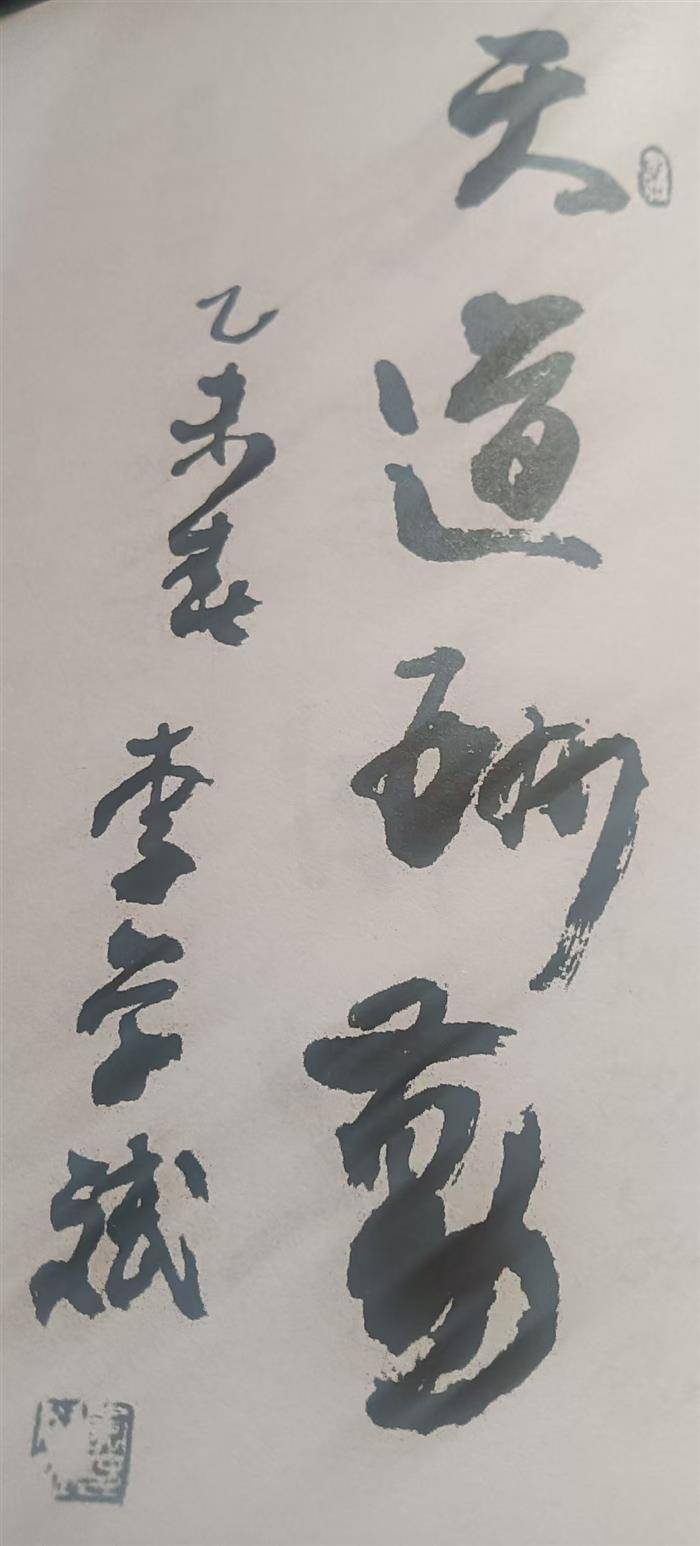 天道酬勤
乙未春
李学斌